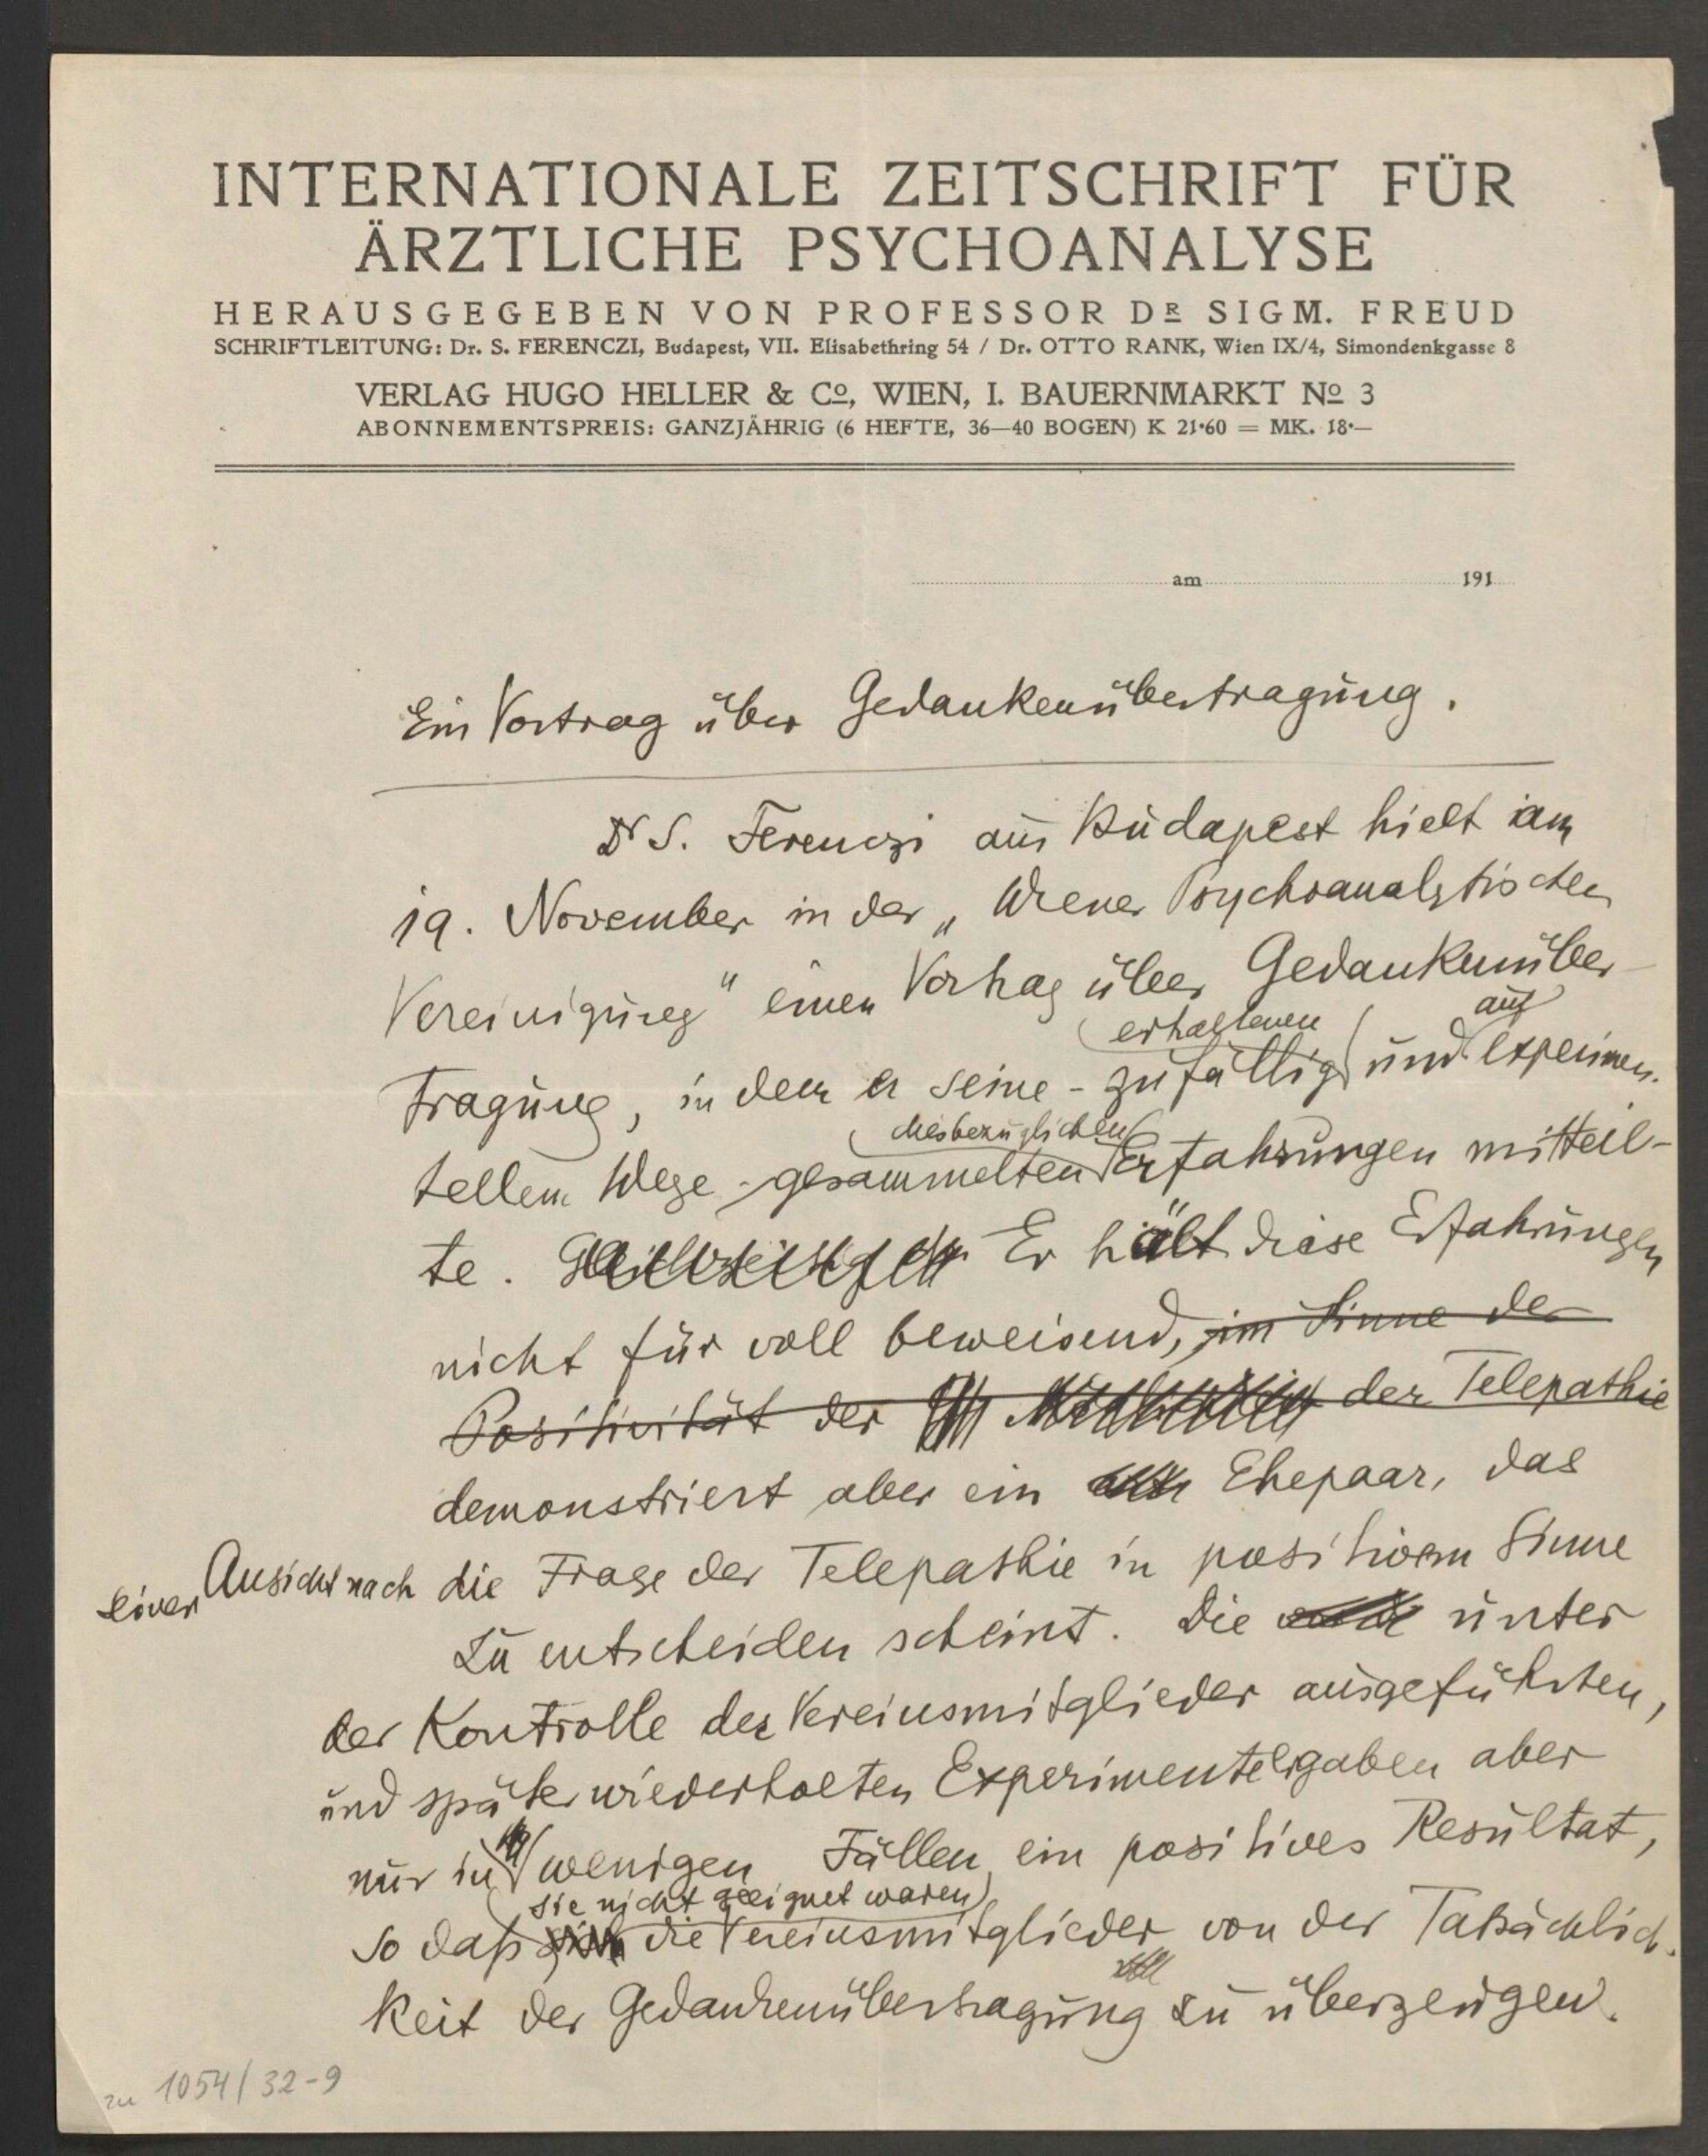 INTERNATIONALE ZEITSCHRIFT FÜR
ÄRZTLICHE PSYCHOANALYSE
HERAUSGEGEBEN VON PROFESSOR DR SIGM. FREUD
SCHRIFTLEITUNG: Dr. S. FERENCZI, Budapest, VII. Elisabethring 54 / Dr. OTTO RANK, Wien IX/4, Simondenkgasse 8
VERLAG HUGO HELLER & Co, WIEN, I. BAUERNMARKT No 3
ABONNEMENTSPREIS: GANZJÄHRIG (6 HEFTE, 36—40 BOGEN) K 21·60 = MK. 18·—
am 191
Ein Vortrag über Gedankenübertragung.
Dr S. Ferenczi aus Budapest hielt am
19. November in der „Wiener Psychoanalytischen
Vereinigung" einen Vortrag über Gedankenüber-
erhaltenen auf
tragung, in dem er seine - zufällig und experimen-
diesbezüglichen
tellem Wege - gesammelten Erfahrungen mitteil-
te. Er hält diese Erfahrungen
nicht für voll beweisend, im Sinne der
Positivität der der Telepathie
demonstriert aber ein Ehepaar, das
seiner Ansicht nach die Frage der Telepathie in positivem Sinne
zu entscheiden scheint. Die unter
der Kontrolle der Vereinsmitglieder ausgeführten,
und später wiederholten Experimente ergaben aber
nur in wenigen Fällen ein positives Resultat,
sie nicht geeignet waren
so daß die Vereinsmitglieder von der Tatsächlich-
keit der Gedankenübertragung zu überzeugen.
zu 1054/32-9